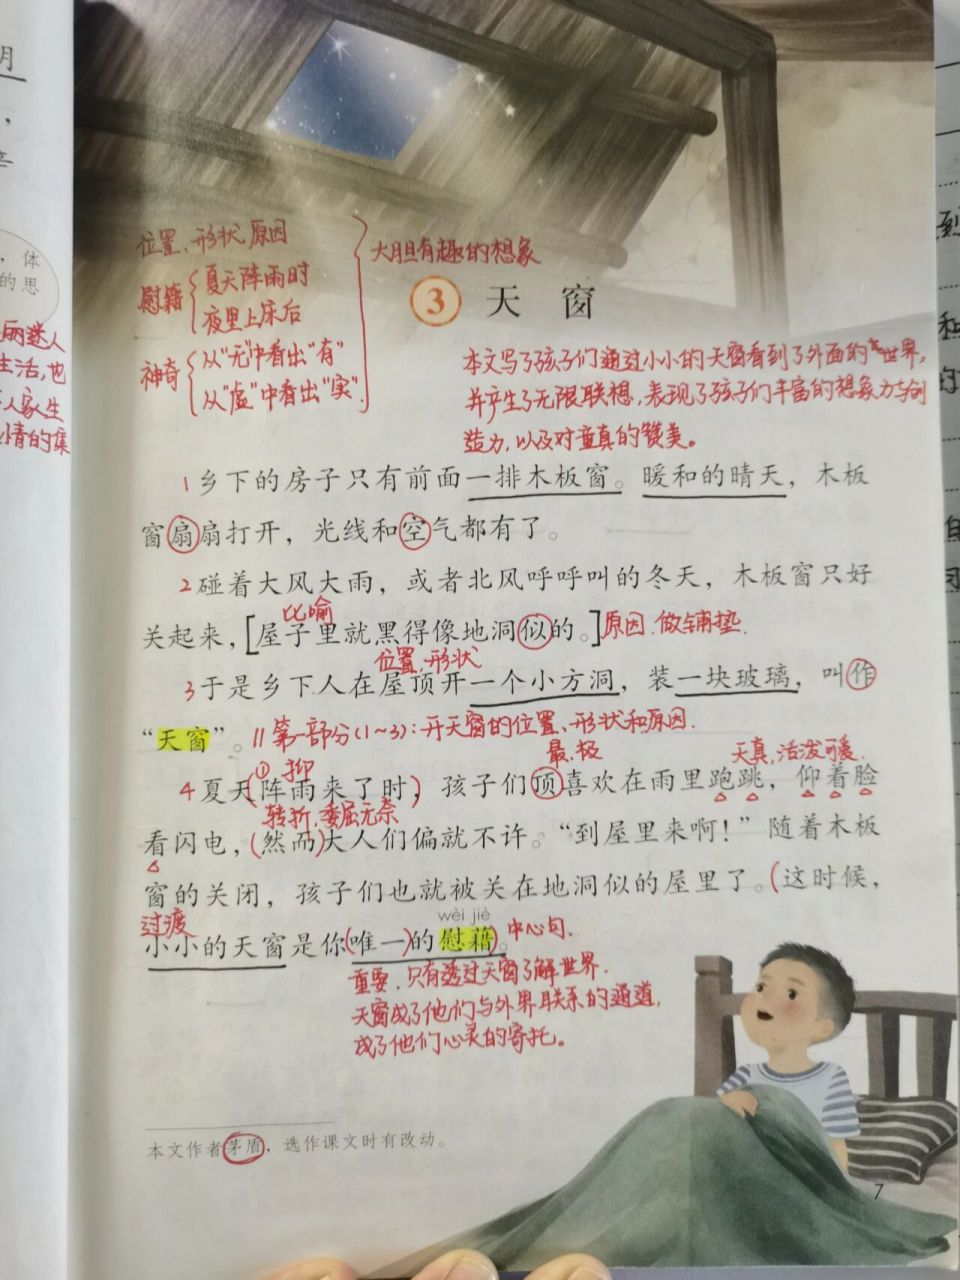 月
，
辛
、体
的思
丽迷人
生活,也
人家生
情的集
位置、形状 原因
慰籍 夏天阵雨时
夜里上床后
神奇 从"无"中看出"有"
从"虚"中看出"实".
大胆有趣的想象
3 天 窗
本文写了孩子们通过小小的天窗看到了外面的世界,
并产生了无限联想,表现了孩子们丰富的想象力与创
造力,以及对童真的赞美。
1 乡下的房子只有前面一排木板窗。暖和的晴天，木板
窗扇扇打开，光线和空气都有了。
2 碰着大风大雨，或者北风呼呼叫的冬天，木板窗只好
比喻
关起来，[屋子里就黑得像地洞似的。]原因.做铺垫.
位置.形状
3 于是乡下人在屋顶开一个小方洞，装一块玻璃，叫作
“天窗”。//第一部分(1~3):开天窗的位置、形状和原因.
① 抑
最.极
天真,活泼可爱.
4 夏天(阵雨来了时)，孩子们顶喜欢在雨里跑跳，仰着脸
转折.委屈无奈
看闪电，(然而)大人们偏就不许。“到屋里来啊！”随着木板
窗的关闭，孩子们也就被关在地洞似的屋里了。(这时候，
过渡
wèi jiè
小小的天窗是你(唯一)的慰藉)。中心句.
重要.只有透过天窗了解世界.
天窗成了他们与外界联系的通道,
成了他们心灵的寄托。
本文作者茅盾，选作课文时有改动。
7
到
和
的